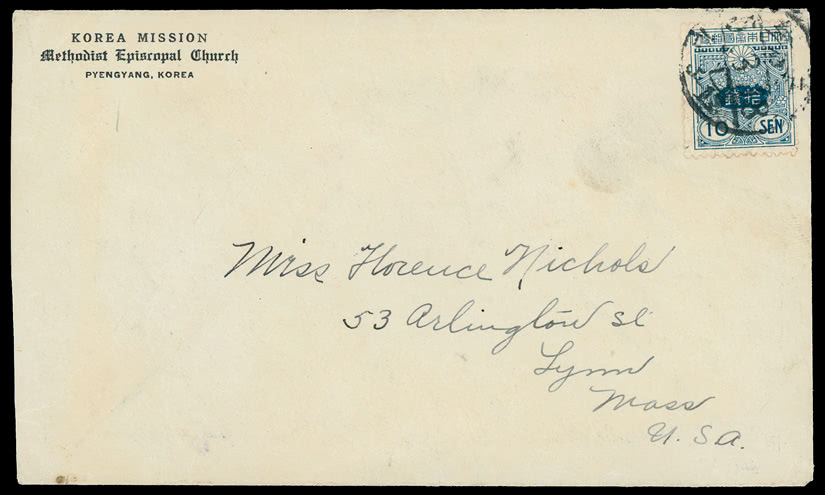 KOREA MISSION
Methodist Episcopal Church
PYENGYANG, KOREA
大日本帝國郵便
拾銭
10 SEN
Miss Florence Nichols
53 Arlington St
Lynn
Mass
U.S.A.